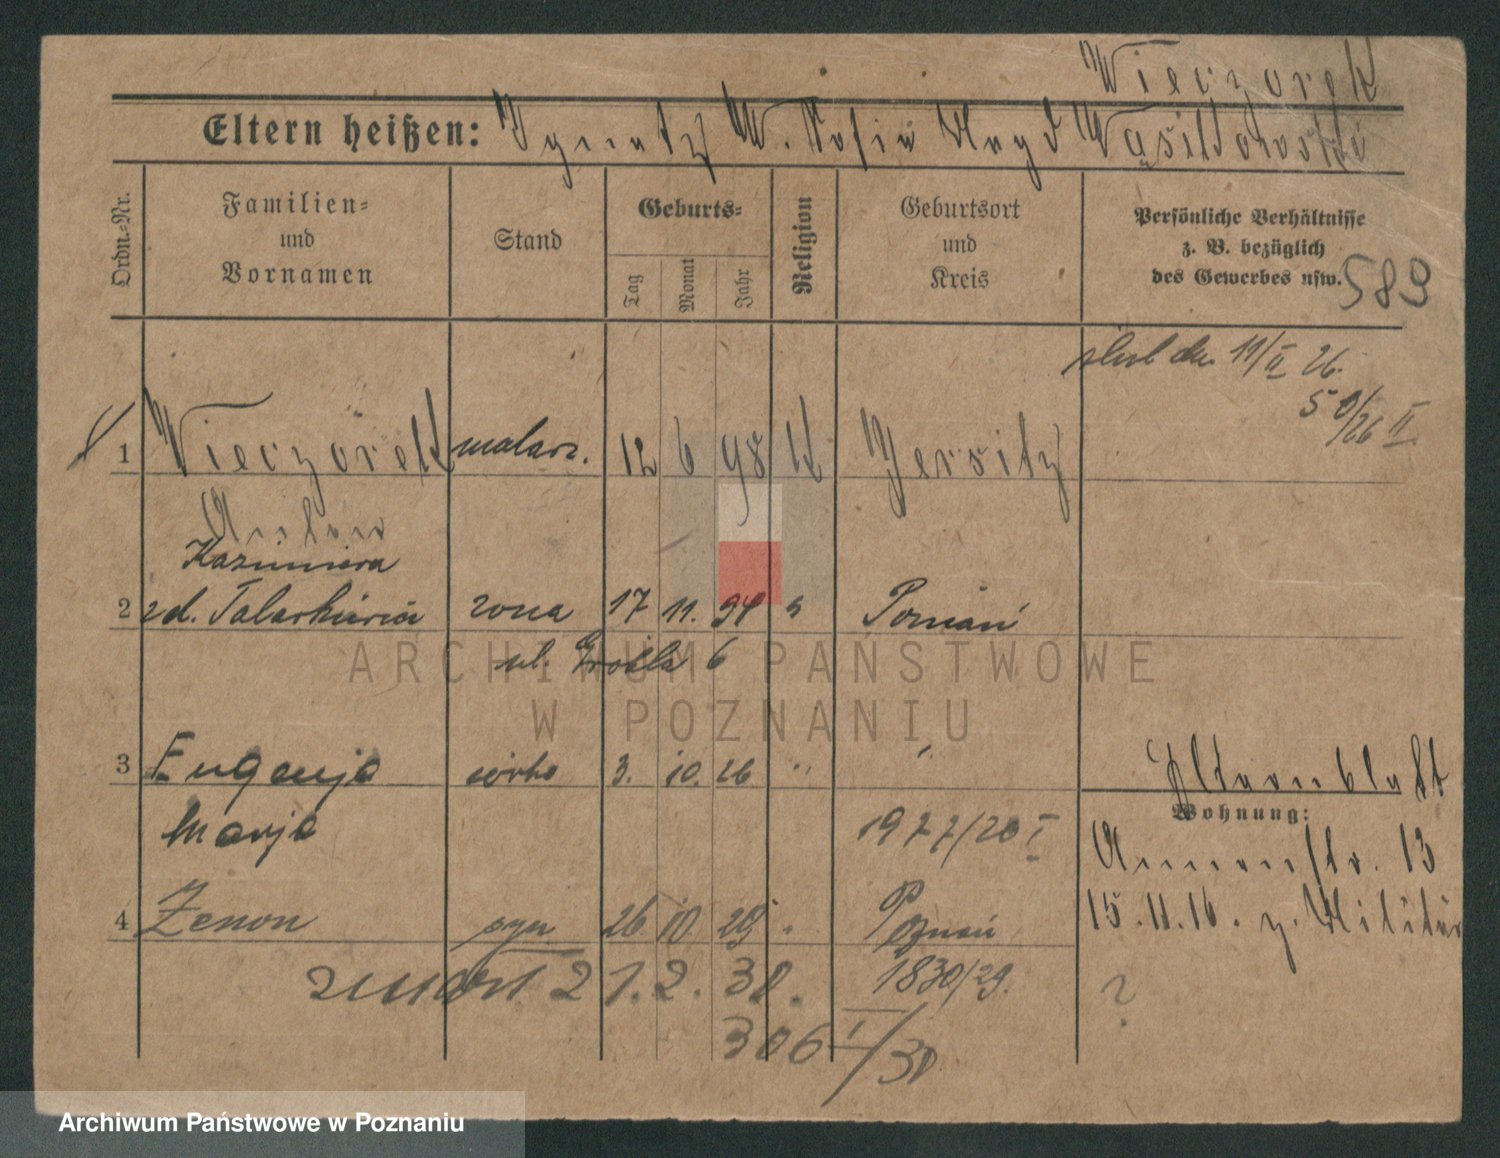 Wieczorek
Eltern heißen: Ignatz W. Sofia
Ordn.-Nr.
Familien-
und
Vornamen
Stand
Geburts-
Tag
Monat
Jahr
Religion
Geburtsort
und
Kreis
Persönliche Verhältnisse
z. B. bezüglich
des Gewerbes usw. 583
ślub dn. 11/II 26.
50/26 II
1 Wieczorek malarz. 12 6 98 K Jersitz
Anton
Kazimiera
2 zd. żona 17 11. 94 " Poznań
ul. Grobla 6
3 Eugenja córka 3. 10. 26 " "
Marja
1977/26 I
4 Zenon syn 26 10 29 " Poznań
zmarł. 21. 2. 30.
1830/29.
306 I/30
Elternblatt
Wohnung:
Annenstr. 13
15.11.16. z. Militär
?
ARCHIWUM PAŃSTWOWE
W POZNANIU
Archiwum Państwowe w Poznaniu